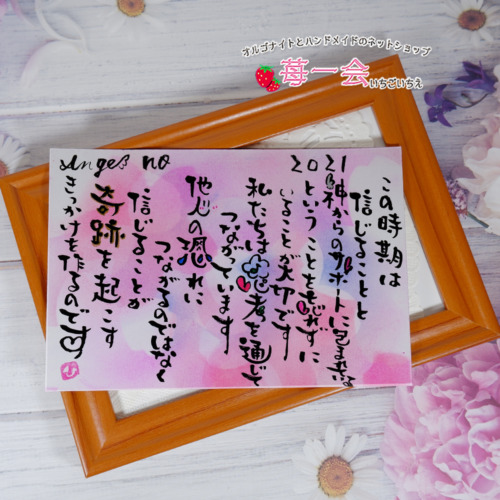 オルゴナイトとハンドメイドのネットショップ
苺一会
いちごいちえ
Angel no 2021
この時期は
信じることと
神からのサポートに包まれている
ということを忘れずに
いることが大切です
私たちは思考を通じて
つながっています
他人の恐れに
つながるのではなく
信じることが
奇跡を起こす
きっかけを作るのです♡